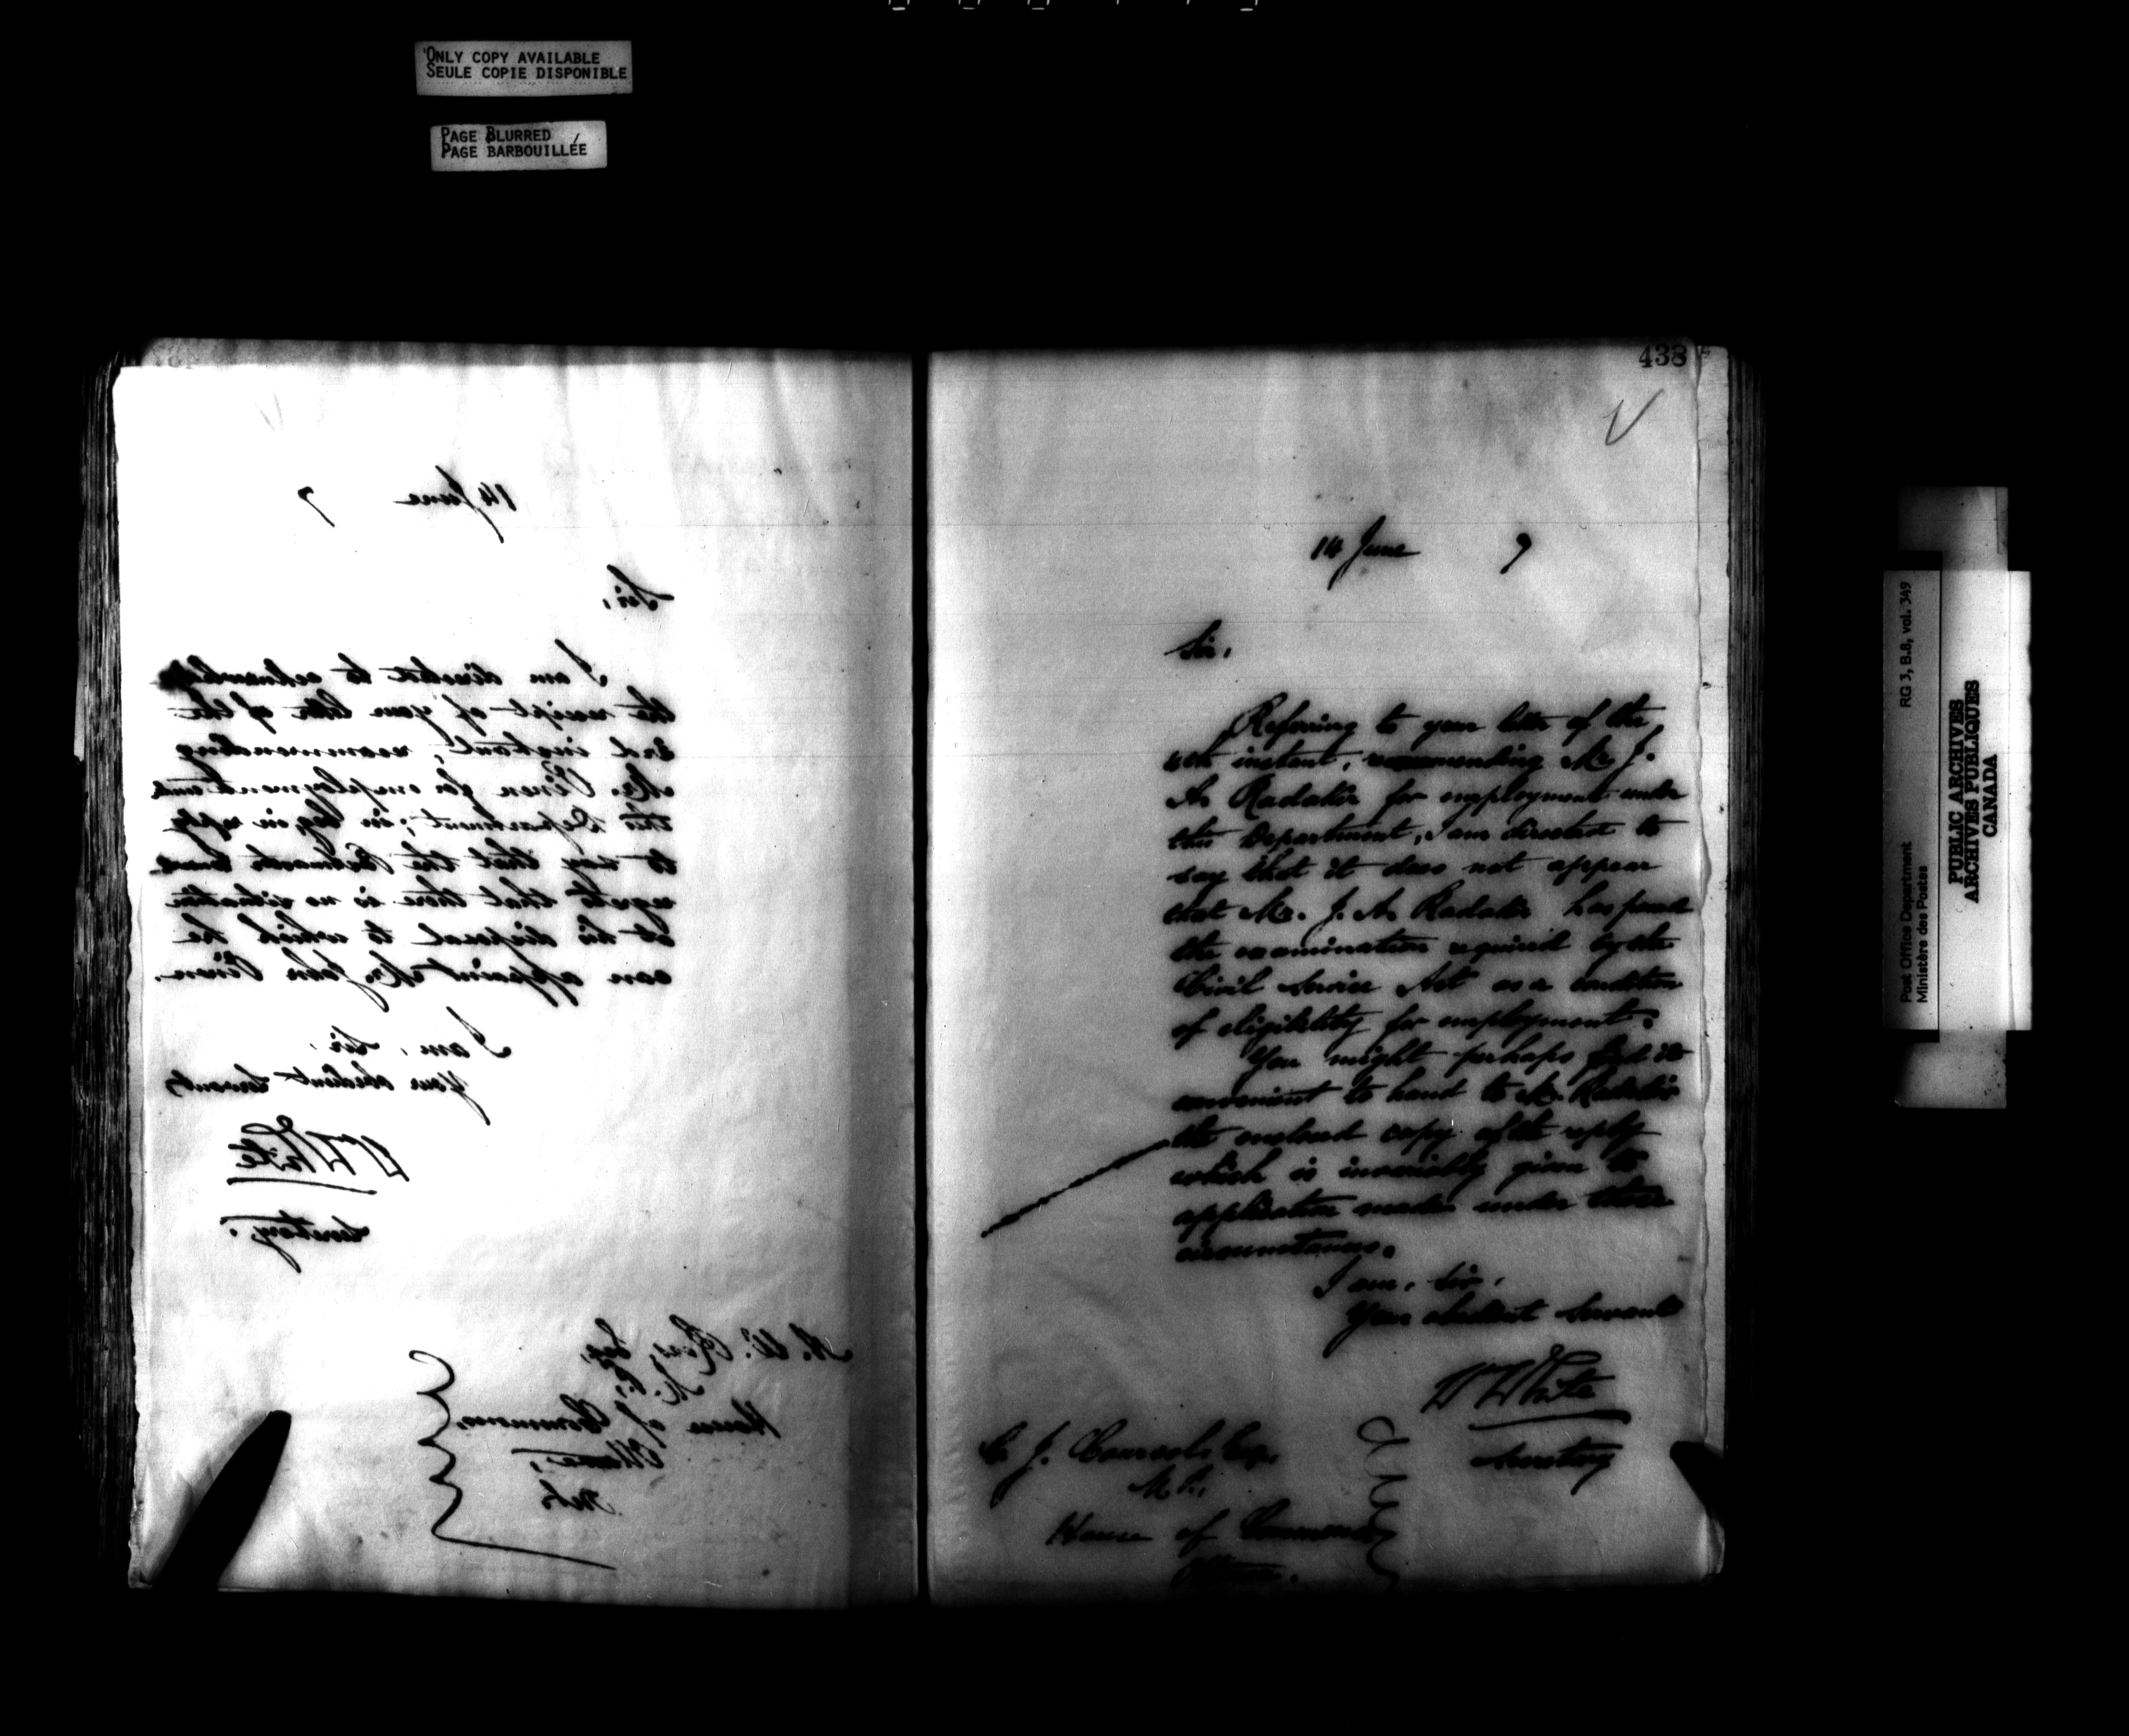 ONLY COPY AVAILABLE
SEULE COPIE DISPONIBLE
PAGE BLURRED
PAGE BARBOUILLÉE
14 June 7
Sir,
I am directed to acknowledge
the receipt of your letter of the
3rd instant, recommending
Mr. for employment under
this Department; I beg, in reply
to say that the
regrets that there is no situation
at his disposal to which he
can appoint Mr. John
I am, Sir,
Your obedient Servant,
W White
Secretary.
A. W. Ross, Esq,
M.P.,
House of Commons,
Ottawa,
438
14 June 7
Sir,
Referring to your letter of the
instant, recommending Mr. J.
A. for employment under
this Department, I am directed to
say that it does not appear
that Mr. J. A. has passed
the examination required by the
Civil Service Act as a condition
of eligibility for employment.
You might perhaps find it
convenient to hand to Mr.
the enclosed copy of the reply
which is invariably given to
application made under these
circumstances.
I am, Sir,
Your obedient Servant
W White
Secretary
C. J. Coursol, Esq,
M.P.,
House of Commons
Ottawa.
Post Office Department
Ministère des Postes
RG 3, B.8, vol. 349
PUBLIC ARCHIVES
ARCHIVES PUBLIQUES
CANADA